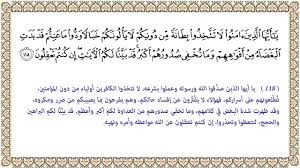 يَٰٓأَيُّهَا ٱلَّذِينَ ءَامَنُوا۟ لَا تَتَّخِذُوا۟ بِطَانَةً مِّن دُونِكُمْ لَا يَأْلُونَكُمْ خَبَالًا وَدُّوا۟ مَا عَنِتُّمْ قَدْ بَدَتِ
ٱلْبَغْضَآءُ مِنْ أَفْوَٰهِهِمْ وَمَا تُخْفِى صُدُورُهُمْ أَكْبَرُ قَدْ بَيَّنَّا لَكُمُ ٱلْءَايَٰتِ إِن كُنتُمْ تَعْقِلُونَ ١١٨
(118) يا أيها الذين صدَّقوا الله ورسوله وعملوا بشرعه، لا تتخذوا الكافرين أولياء من دون المؤمنين،
تُطْلعونهم على أسراركم، فهؤلاء لا يَفْتُرون عن إفساد حالكم، وهم يفرحون بما يصيبكم من ضرر ومكروه،
وقد ظهرت شدة البغض في كلامهم، وما تخفي صدورهم من العداوة لكم أكبر وأعظم. قد بيَّنَّا لكم البراهين
والحجج، لتتعظوا وتحذروا، إن كنتم تعقلون عن الله مواعظه وأمره ونهيه.